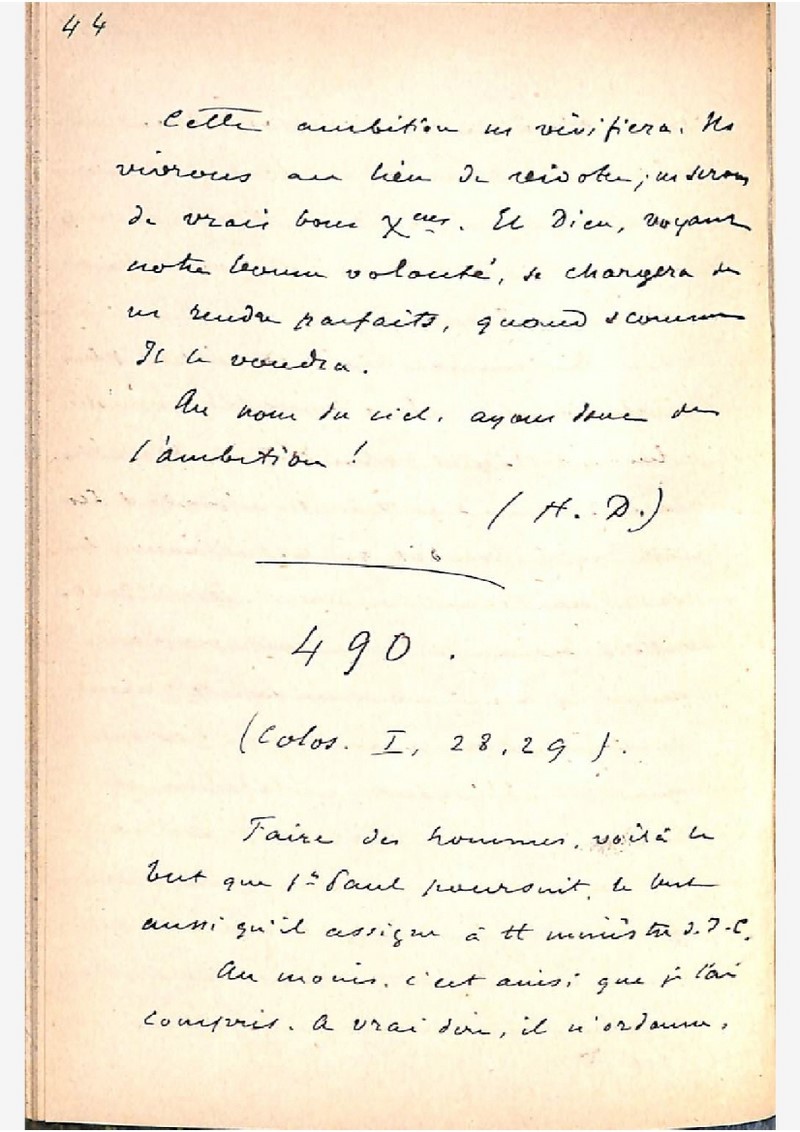 44
Cette ambition ns vivifiera. Ns
vivrons au lieu de vivoter; ns serons
de vrais bons Xens. Et Dieu, voyant
notre bonne volonté, se chargera de
ns rendre parfaits, quand & comme
Il le voudra.
Au nom du ciel, ayons donc de
l'ambition !
(H. D.)
490.
(Colos. I, 28, 29).
Faire des hommes, voilà le
but que St Paul poursuit, le but
aussi qu'il assigne à tt ministre d. J-C.
Au moins, c'est ainsi que je l'ai
compris. A vrai dire, il n'ordonne,